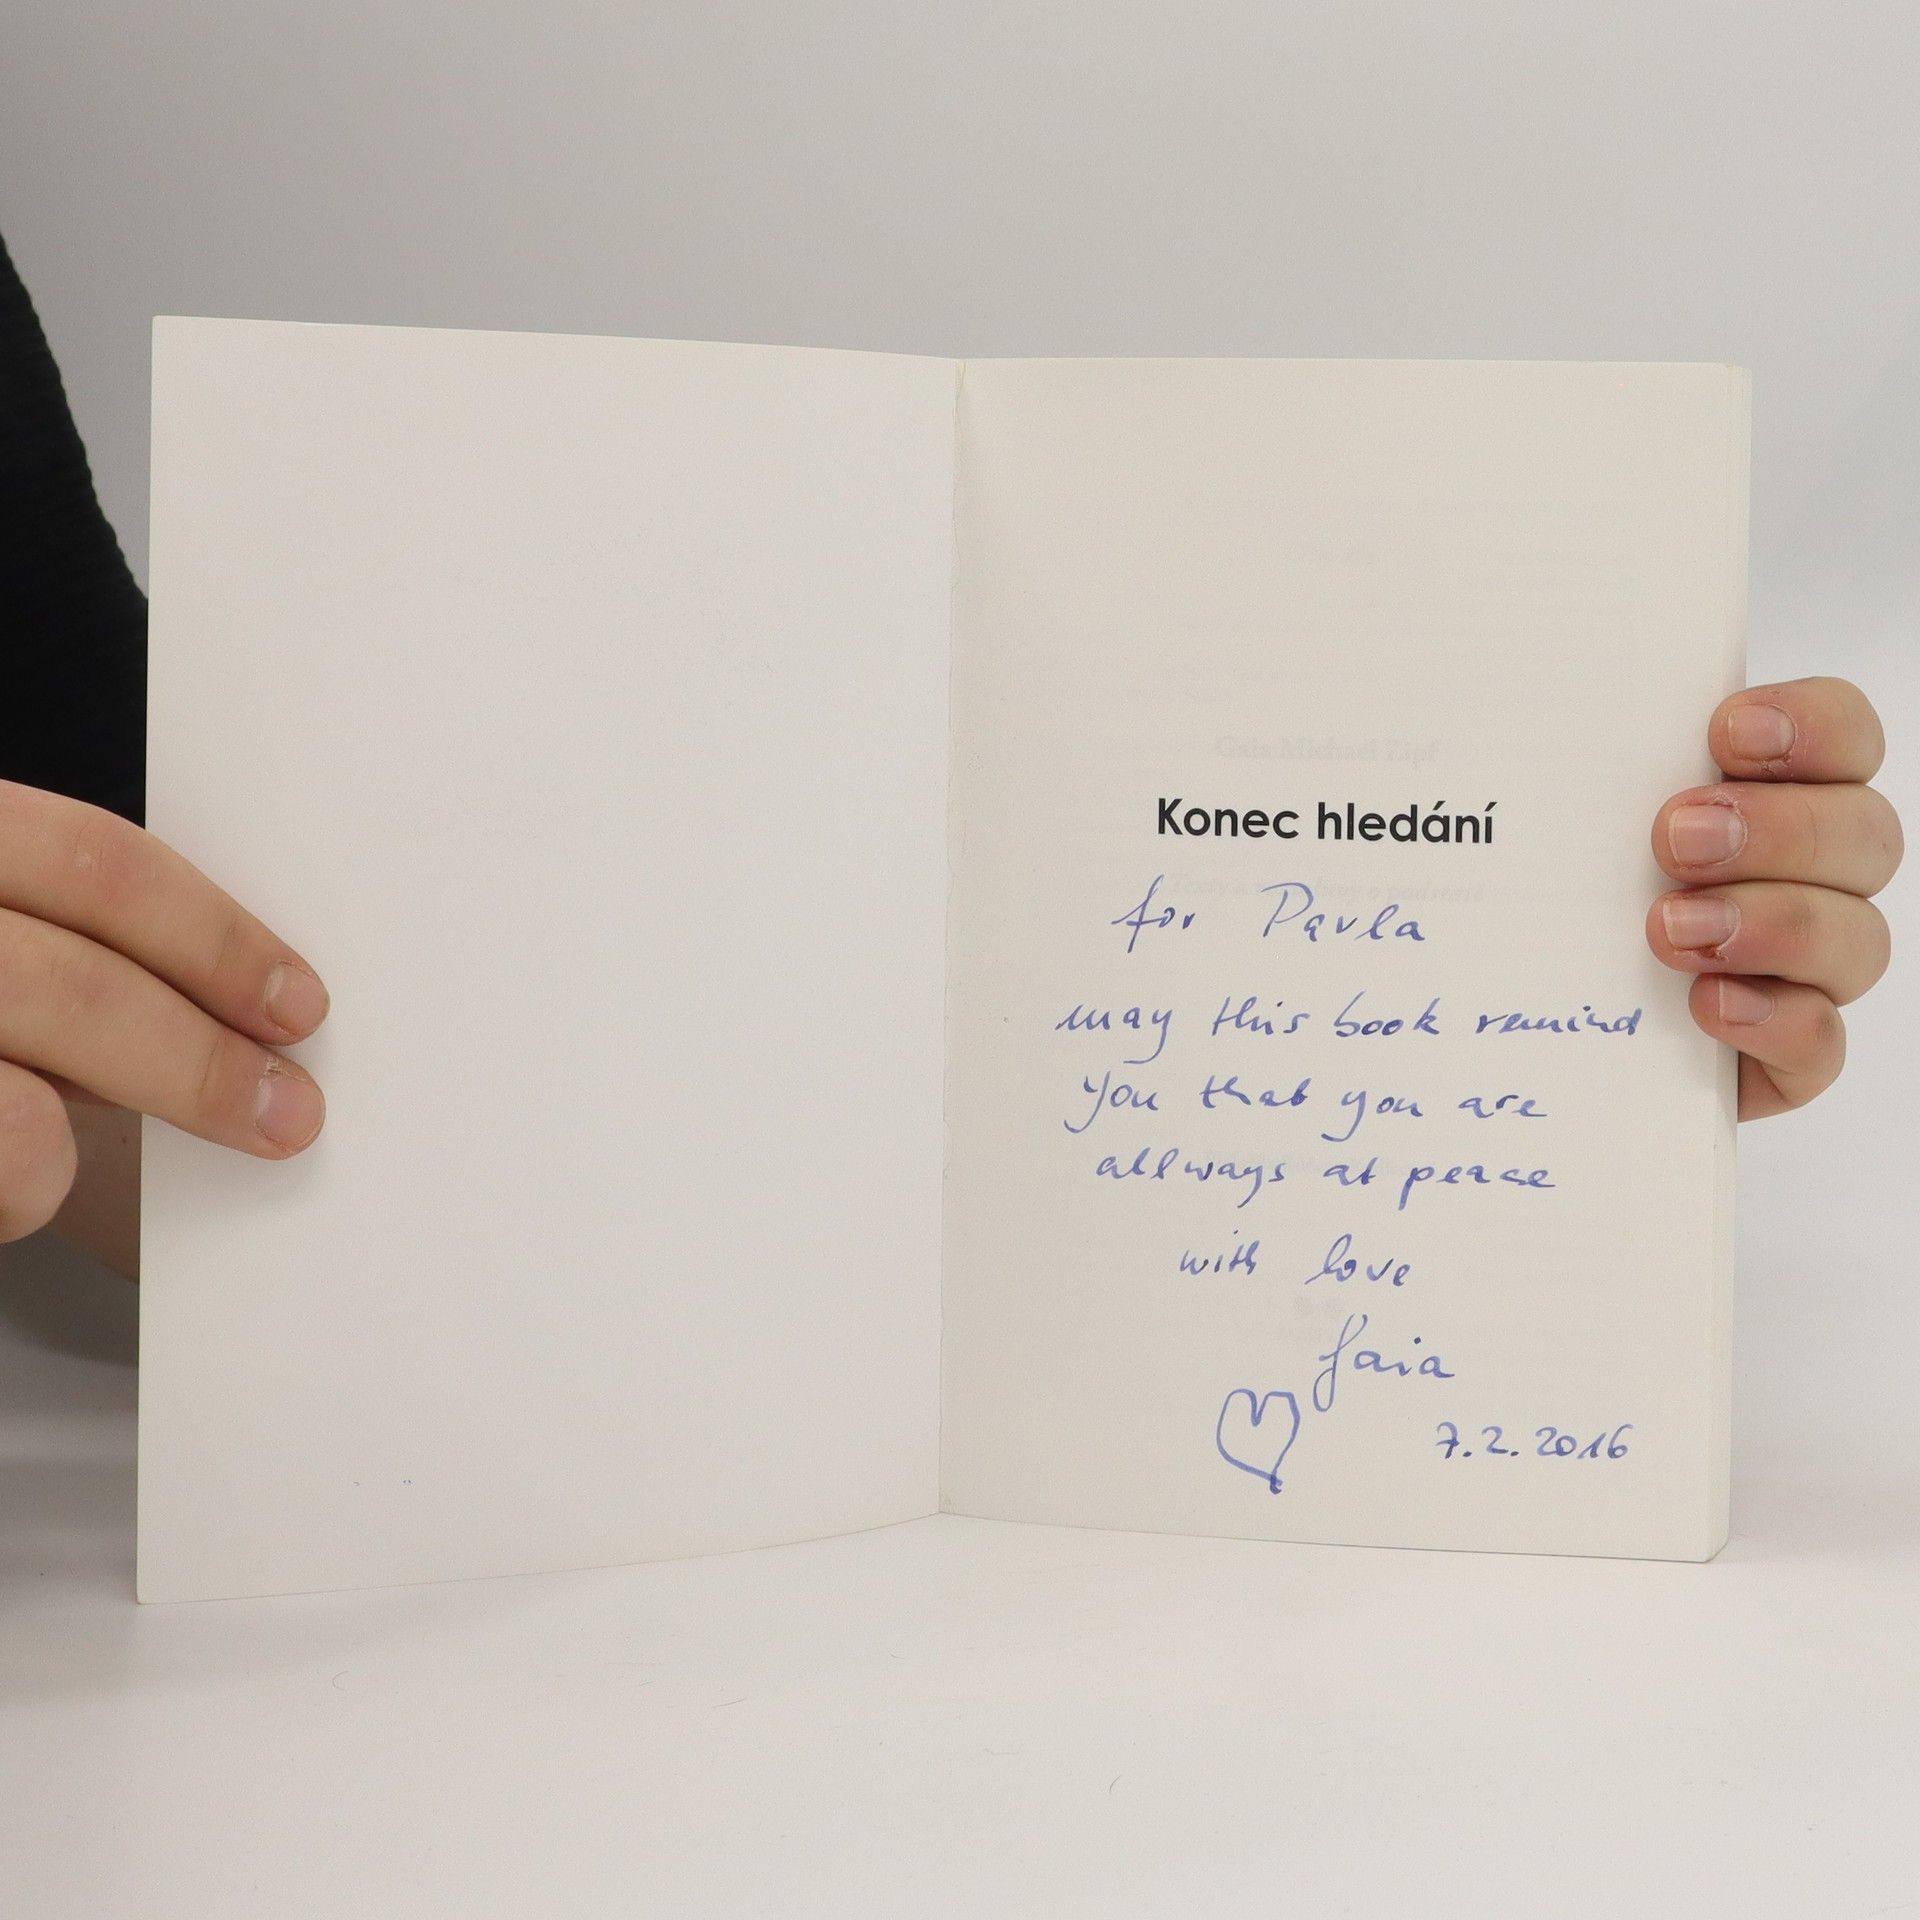 Gaia Michael Zipf
Konec hledání
for Pavla
may this book remind
you that you are
allways at peace
with love
Gaia
7.2.2016